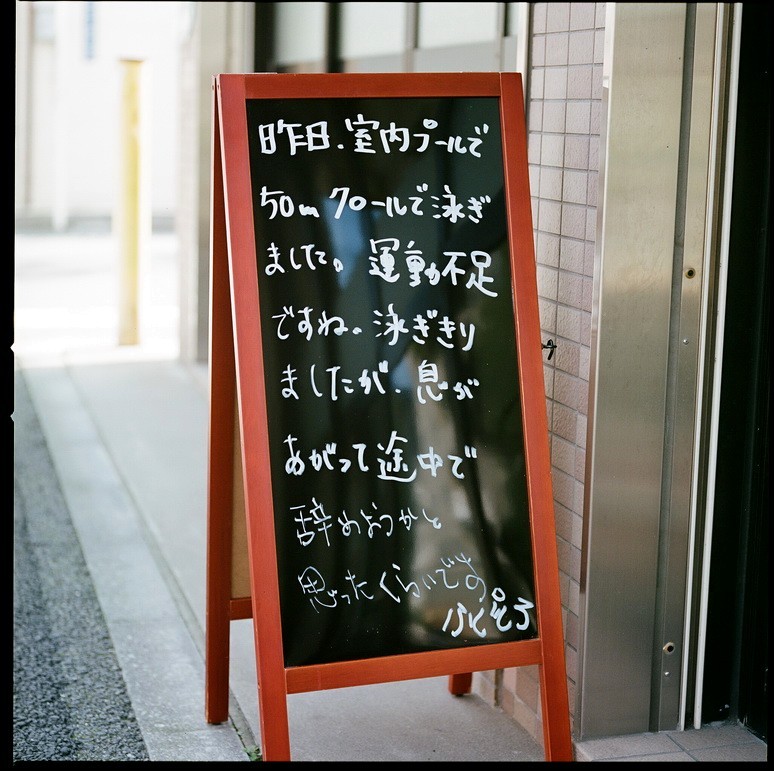 昨日、室内プールで
50mクロールで泳ぎ
ました。運動不足
ですね。泳ぎきり
ましたが、息が
あがって途中で
辞めようかと
思ったくらいです